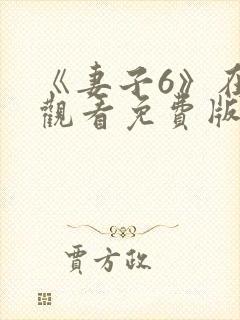 《妻子6》在
觀看免費版
賈方政